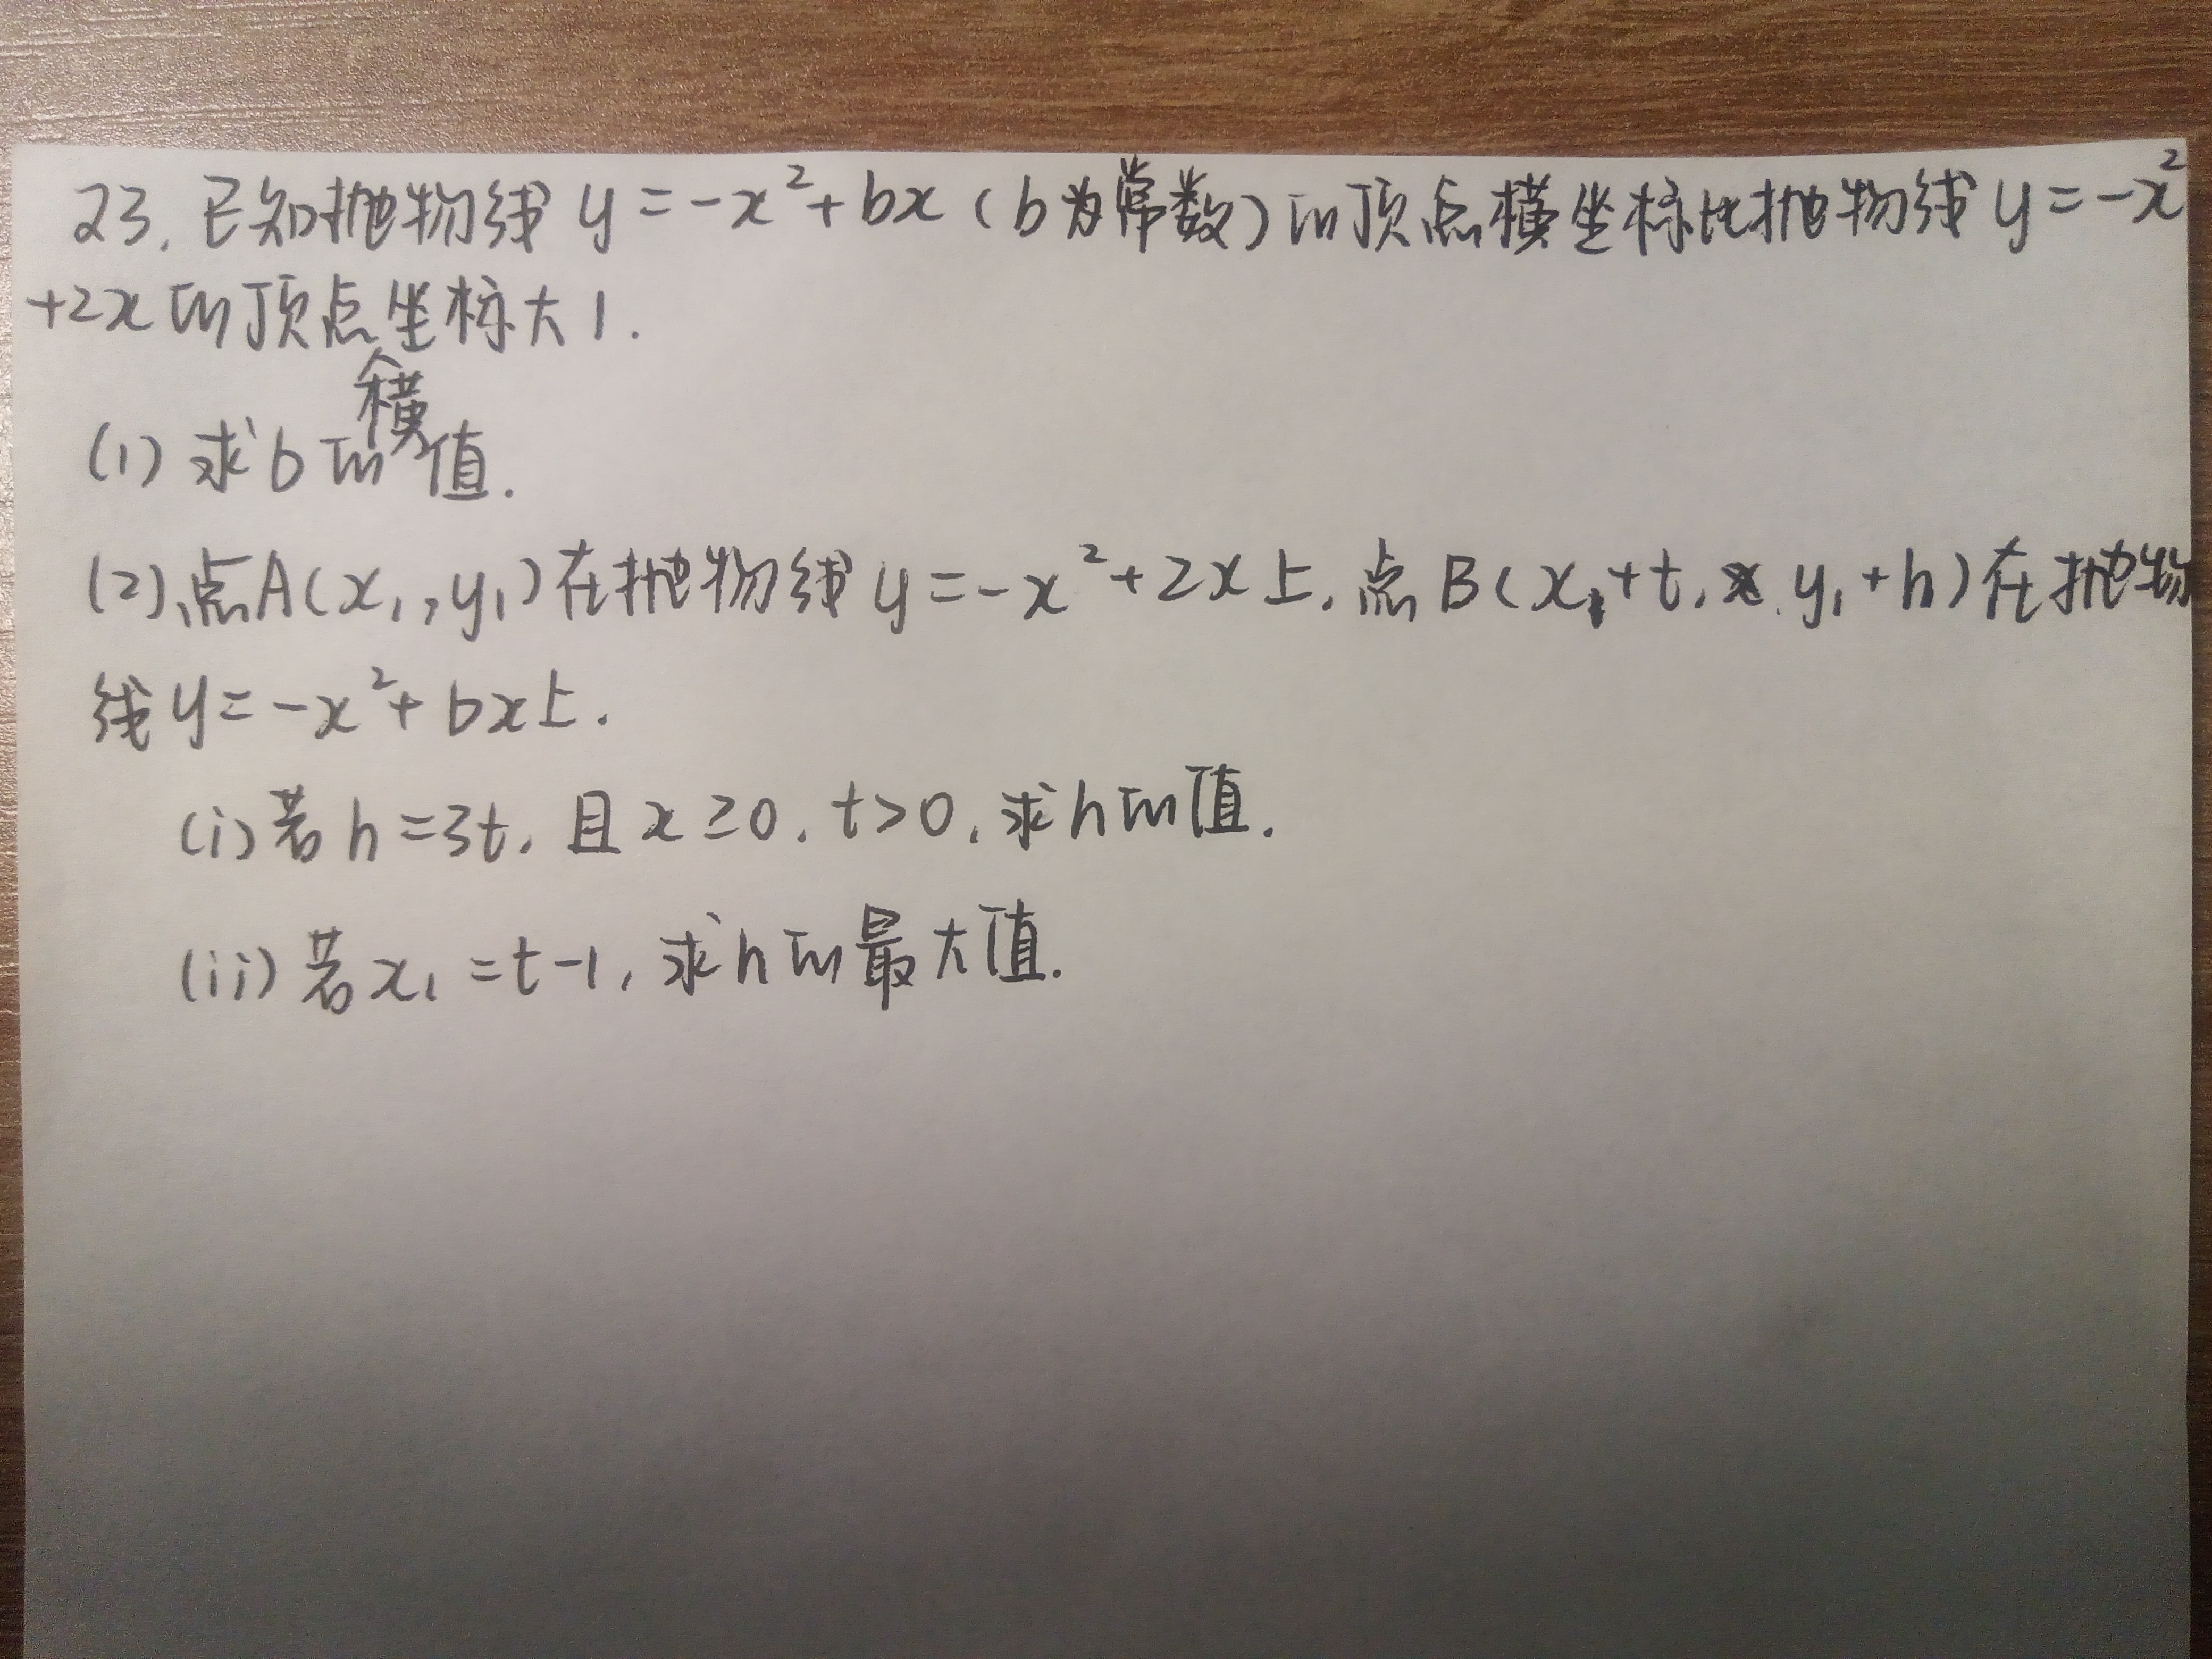 23. 已知抛物线 y=-x²+bx (b为常数)的顶点横坐标比抛物线 y=-x²
+2x的顶点横坐标大1.
(1) 求b的值.
(2) 点A(x₁,y₁)在抛物线y=-x²+2x上,点B(x₁+t, y₁+h)在抛物
线y=-x²+bx上.
(i) 若h=3t, 且x≥0, t>0, 求h的值.
(ii) 若x₁=t-1, 求h的最大值.